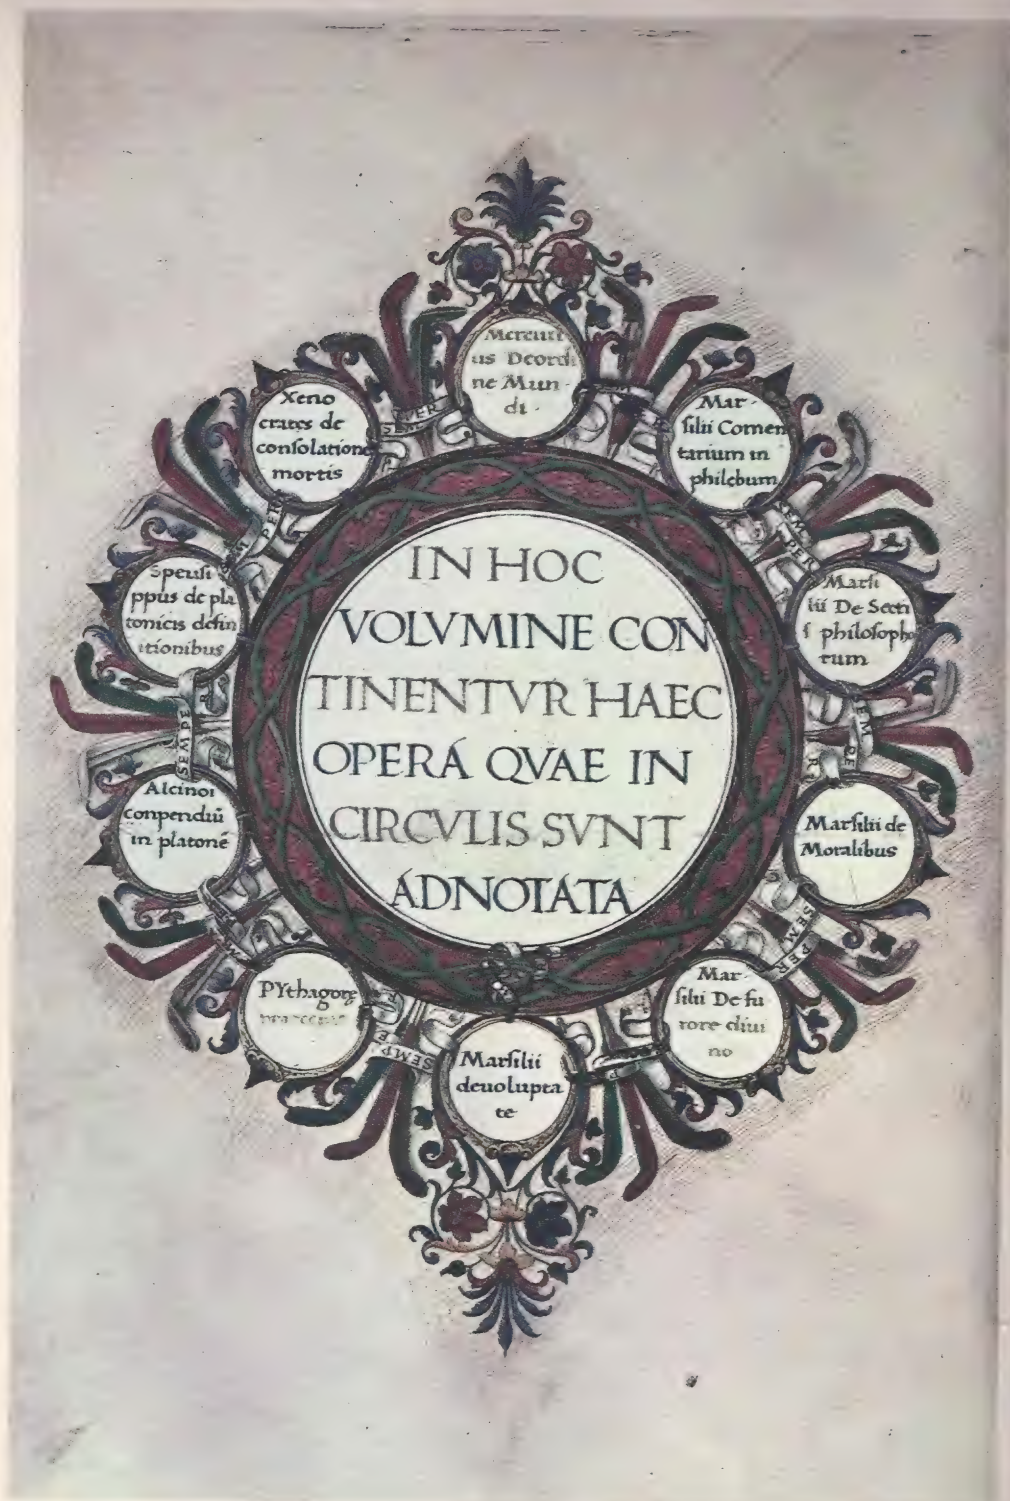 IN HOC
VOLVMINE CON
TINENTVR HAEC
OPERÁ QVAE IN
CIRCVLIS SVNT
ÁDNOTÁTA
Mercur
ius Deordi
ne Mun
di
Mar
silii Comen
tarium in
philębum
Marsi
lii De Secti
s philosopho
rum
Marsilii de
Moralibus
Mar
silii De fu
rore diui
no
Marsilii
deuolupta
te
PYthagorę
Alcinoi
conpendiū
in platonē
Speusi
ppus de pla
tonicis defin
itionibus
Xeno
crates de
consolatione
mortis
SEMPER
SEMPER
SEMPER
SEMPER
SEMPER
SEMPER